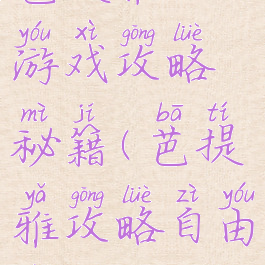 yóu xì gōng lüè
游戏攻略
mì jí ( bā tí
秘籍(芭提
yǎ gōng lüè zì yóu
雅攻略自由